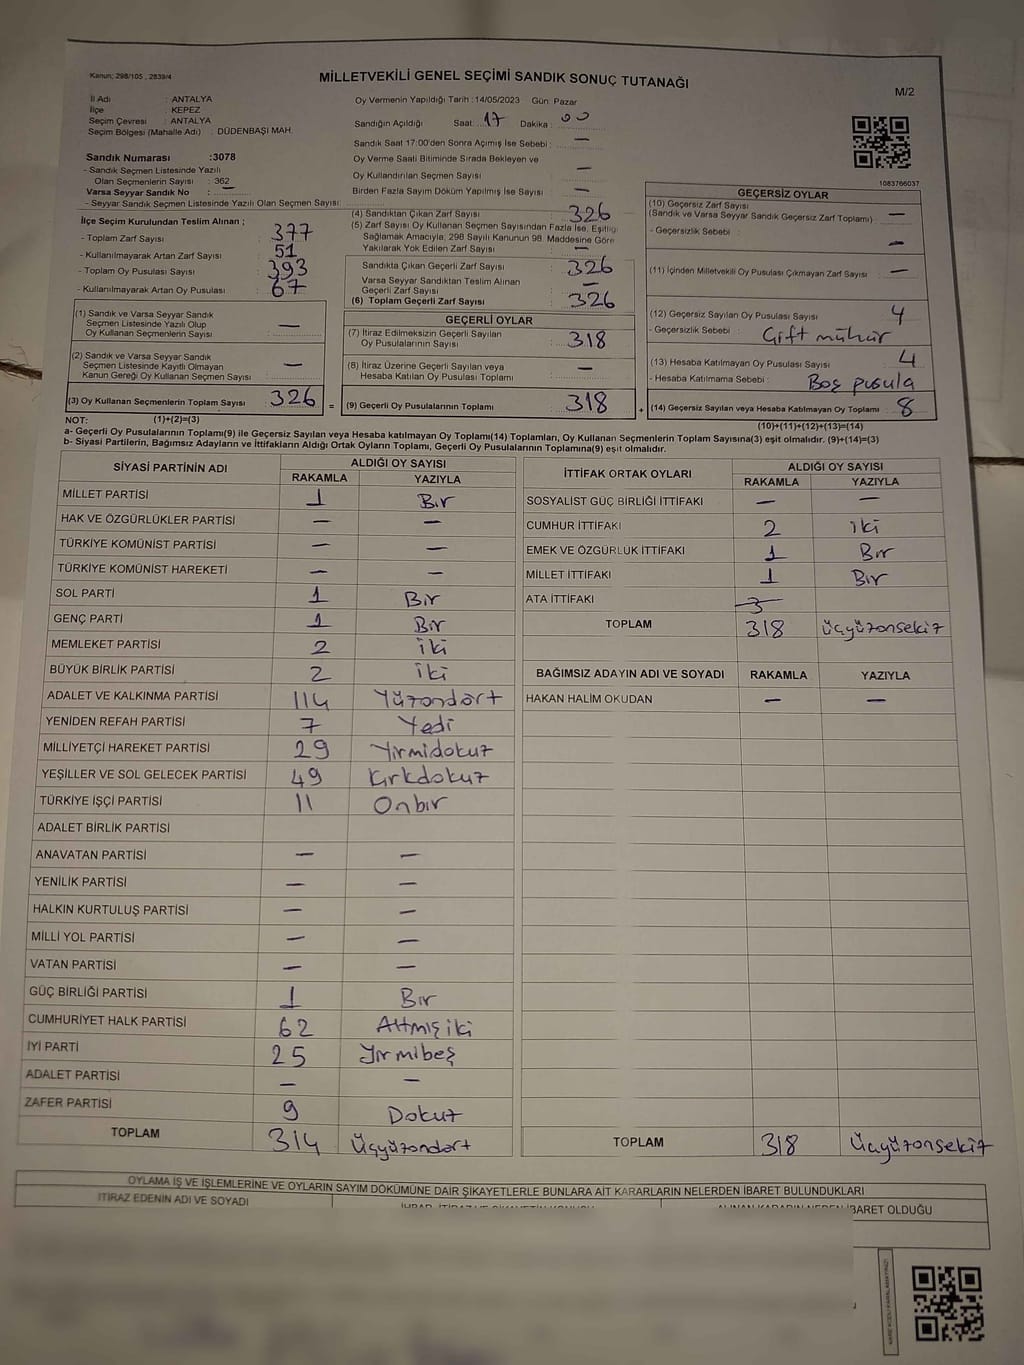 Kanun; 298/105 , 2839/4
MİLLETVEKİLİ GENEL SEÇİMİ SANDIK SONUÇ TUTANAĞI
M/2
İl Adı : ANTALYA
İlçe : KEPEZ
Seçim Çevresi : ANTALYA
Seçim Bölgesi (Mahalle Adı) : DÜDENBAŞI MAH.
Oy Vermenin Yapıldığı Tarih :14/05/2023 Gün: Pazar
Sandığın Açıldığı Saat: 17 Dakika : 00
Sandık Saat 17:00'den Sonra Açılmış İse Sebebi : —
Oy Verme Saati Bitiminde Sırada Bekleyen ve
Oy Kullandırılan Seçmen Sayısı : —
Birden Fazla Sayım Döküm Yapılmış İse Sayısı : —
Sandık Numarası :3078
- Sandık Seçmen Listesinde Yazılı
Olan Seçmenlerin Sayısı : 362
Varsa Seyyar Sandık No : —
- Seyyar Sandık Seçmen Listesinde Yazılı Olan Seçmen Sayısı:
1083766037
İlçe Seçim Kurulundan Teslim Alınan ;
- Toplam Zarf Sayısı : 377
- Kullanılmayarak Artan Zarf Sayısı : 51
- Toplam Oy Pusulası Sayısı : 393
- Kullanılmayarak Artan Oy Pusulası : 67
(1) Sandık ve Varsa Seyyar Sandık
Seçmen Listesinde Yazılı Olup
Oy Kullanan Seçmenlerin Sayısı : —
(2) Sandık ve Varsa Seyyar Sandık
Seçmen Listesinde Kayıtlı Olmayan
Kanun Gereği Oy Kullanan Seçmen Sayısı : —
(3) Oy Kullanan Seçmenlerin Toplam Sayısı : 326 =
(4) Sandıktan Çıkan Zarf Sayısı : 326
(5) Zarf Sayısı Oy Kullanan Seçmen Sayısından Fazla İse, Eşitliği
Sağlamak Amacıyla, 298 Sayılı Kanunun 98. Maddesine Göre
Yakılarak Yok Edilen Zarf Sayısı : —
Sandıkta Çıkan Geçerli Zarf Sayısı : 326
Varsa Seyyar Sandıktan Teslim Alınan
Geçerli Zarf Sayısı : —
(6) Toplam Geçerli Zarf Sayısı : 326
GEÇERLİ OYLAR
(7) İtiraz Edilmeksizin Geçerli Sayılan
Oy Pusulalarının Sayısı : 318
(8) İtiraz Üzerine Geçerli Sayılan veya
Hesaba Katılan Oy Pusulası Toplamı : —
(9) Geçerli Oy Pusulalarının Toplamı : 318 +
GEÇERSİZ OYLAR
(10) Geçersiz Zarf Sayısı
(Sandık ve Varsa Seyyar Sandık Geçersiz Zarf Toplamı) : —
- Geçersizlik Sebebi : —
(11) İçinden Milletvekili Oy Pusulası Çıkmayan Zarf Sayısı : —
(12) Geçersiz Sayılan Oy Pusulası Sayısı : 4
- Geçersizlik Sebebi : Çift mühür
(13) Hesaba Katılmayan Oy Pusulası Sayısı : 4
- Hesaba Katılmama Sebebi : Boş pusula
(14) Geçersiz Sayılan veya Hesaba Katılmayan Oy Toplamı : 8
NOT: (1)+(2)=(3) (10)+(11)+(12)+(13)=(14)
a- Geçerli Oy Pusulalarının Toplamı(9) ile Geçersiz Sayılan veya Hesaba katılmayan Oy Toplamı(14) Toplamları, Oy Kullanan Seçmenlerin Toplam Sayısına(3) eşit olmalıdır. (9)+(14)=(3)
b- Siyasi Partilerin, Bağımsız Adayların ve İttifakların Aldığı Ortak Oyların Toplamı, Geçerli Oy Pusulalarının Toplamına(9) eşit olmalıdır.
SİYASİ PARTİNİN ADI ALDIĞI OY SAYISI
RAKAMLA YAZIYLA
MİLLET PARTİSİ 1 Bir
HAK VE ÖZGÜRLÜKLER PARTİSİ — —
TÜRKİYE KOMÜNİST PARTİSİ — —
TÜRKİYE KOMÜNİST HAREKETİ — —
SOL PARTİ 1 Bir
GENÇ PARTİ 1 Bir
MEMLEKET PARTİSİ 2 iki
BÜYÜK BİRLİK PARTİSİ 2 iki
ADALET VE KALKINMA PARTİSİ 114 Yüzondört
YENİDEN REFAH PARTİSİ 7 Yedi
MİLLİYETÇİ HAREKET PARTİSİ 29 Yirmidokuz
YEŞİLLER VE SOL GELECEK PARTİSİ 49 Kırkdokuz
TÜRKİYE İŞÇİ PARTİSİ 11 Onbir
ADALET BİRLİK PARTİSİ
ANAVATAN PARTİSİ — —
YENİLİK PARTİSİ — —
HALKIN KURTULUŞ PARTİSİ — —
MİLLİ YOL PARTİSİ — —
VATAN PARTİSİ — —
GÜÇ BİRLİĞİ PARTİSİ 1 Bir
CUMHURİYET HALK PARTİSİ 62 Altmışiki
İYİ PARTİ 25 Yirmibeş
ADALET PARTİSİ — —
ZAFER PARTİSİ 9 Dokuz
TOPLAM 314 Üçyüzondört
İTTİFAK ORTAK OYLARI ALDIĞI OY SAYISI
RAKAMLA YAZIYLA
SOSYALİST GÜÇ BİRLİĞİ İTTİFAKI — —
CUMHUR İTTİFAKI 2 iki
EMEK VE ÖZGÜRLÜK İTTİFAKI 1 Bir
MİLLET İTTİFAKI 1 Bir
ATA İTTİFAKI 3
TOPLAM 318 Üçyüzonsekiz
BAĞIMSIZ ADAYIN ADI VE SOYADI RAKAMLA YAZIYLA
HAKAN HALİM OKUDAN — —
TOPLAM 318 Üçyüzonsekiz
OYLAMA İŞ VE İŞLEMLERİNE VE OYLARIN SAYIM DÖKÜMÜNE DAİR ŞİKAYETLERLE BUNLARA AİT KARARLARIN NELERDEN İBARET BULUNDUKLARI
İTİRAZ EDENİN ADI VE SOYADI
İBARET OLDUĞU